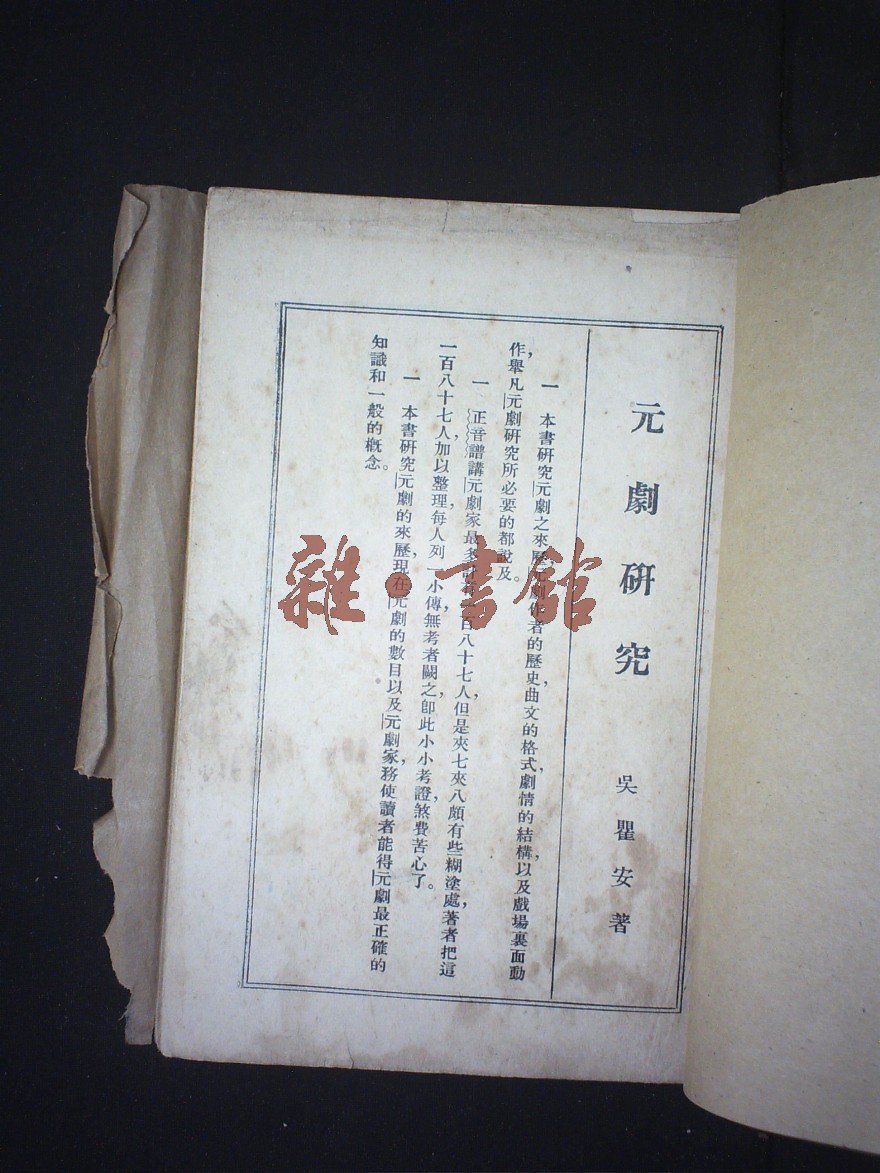 元劇研究
吳瞿安著
一 本書研究元劇之來歷,元劇作者的歷史,曲文的格式,劇情的結構,以及戲場裏面動
作,舉凡元劇研究所必要的都說及。
一 正音譜講元劇家最多,計有一百八十七人,但是夾七夾八,頗有些糊塗處,著者把這
一百八十七人,加以整理,每人列一小傳,無考者闕之,卽此小小考證,煞費苦心了。
一 本書研究元劇的來歷,現在元劇的數目,以及元劇家,務使讀者能得元劇最正確的
知識和一般的槪念。
雜·書館